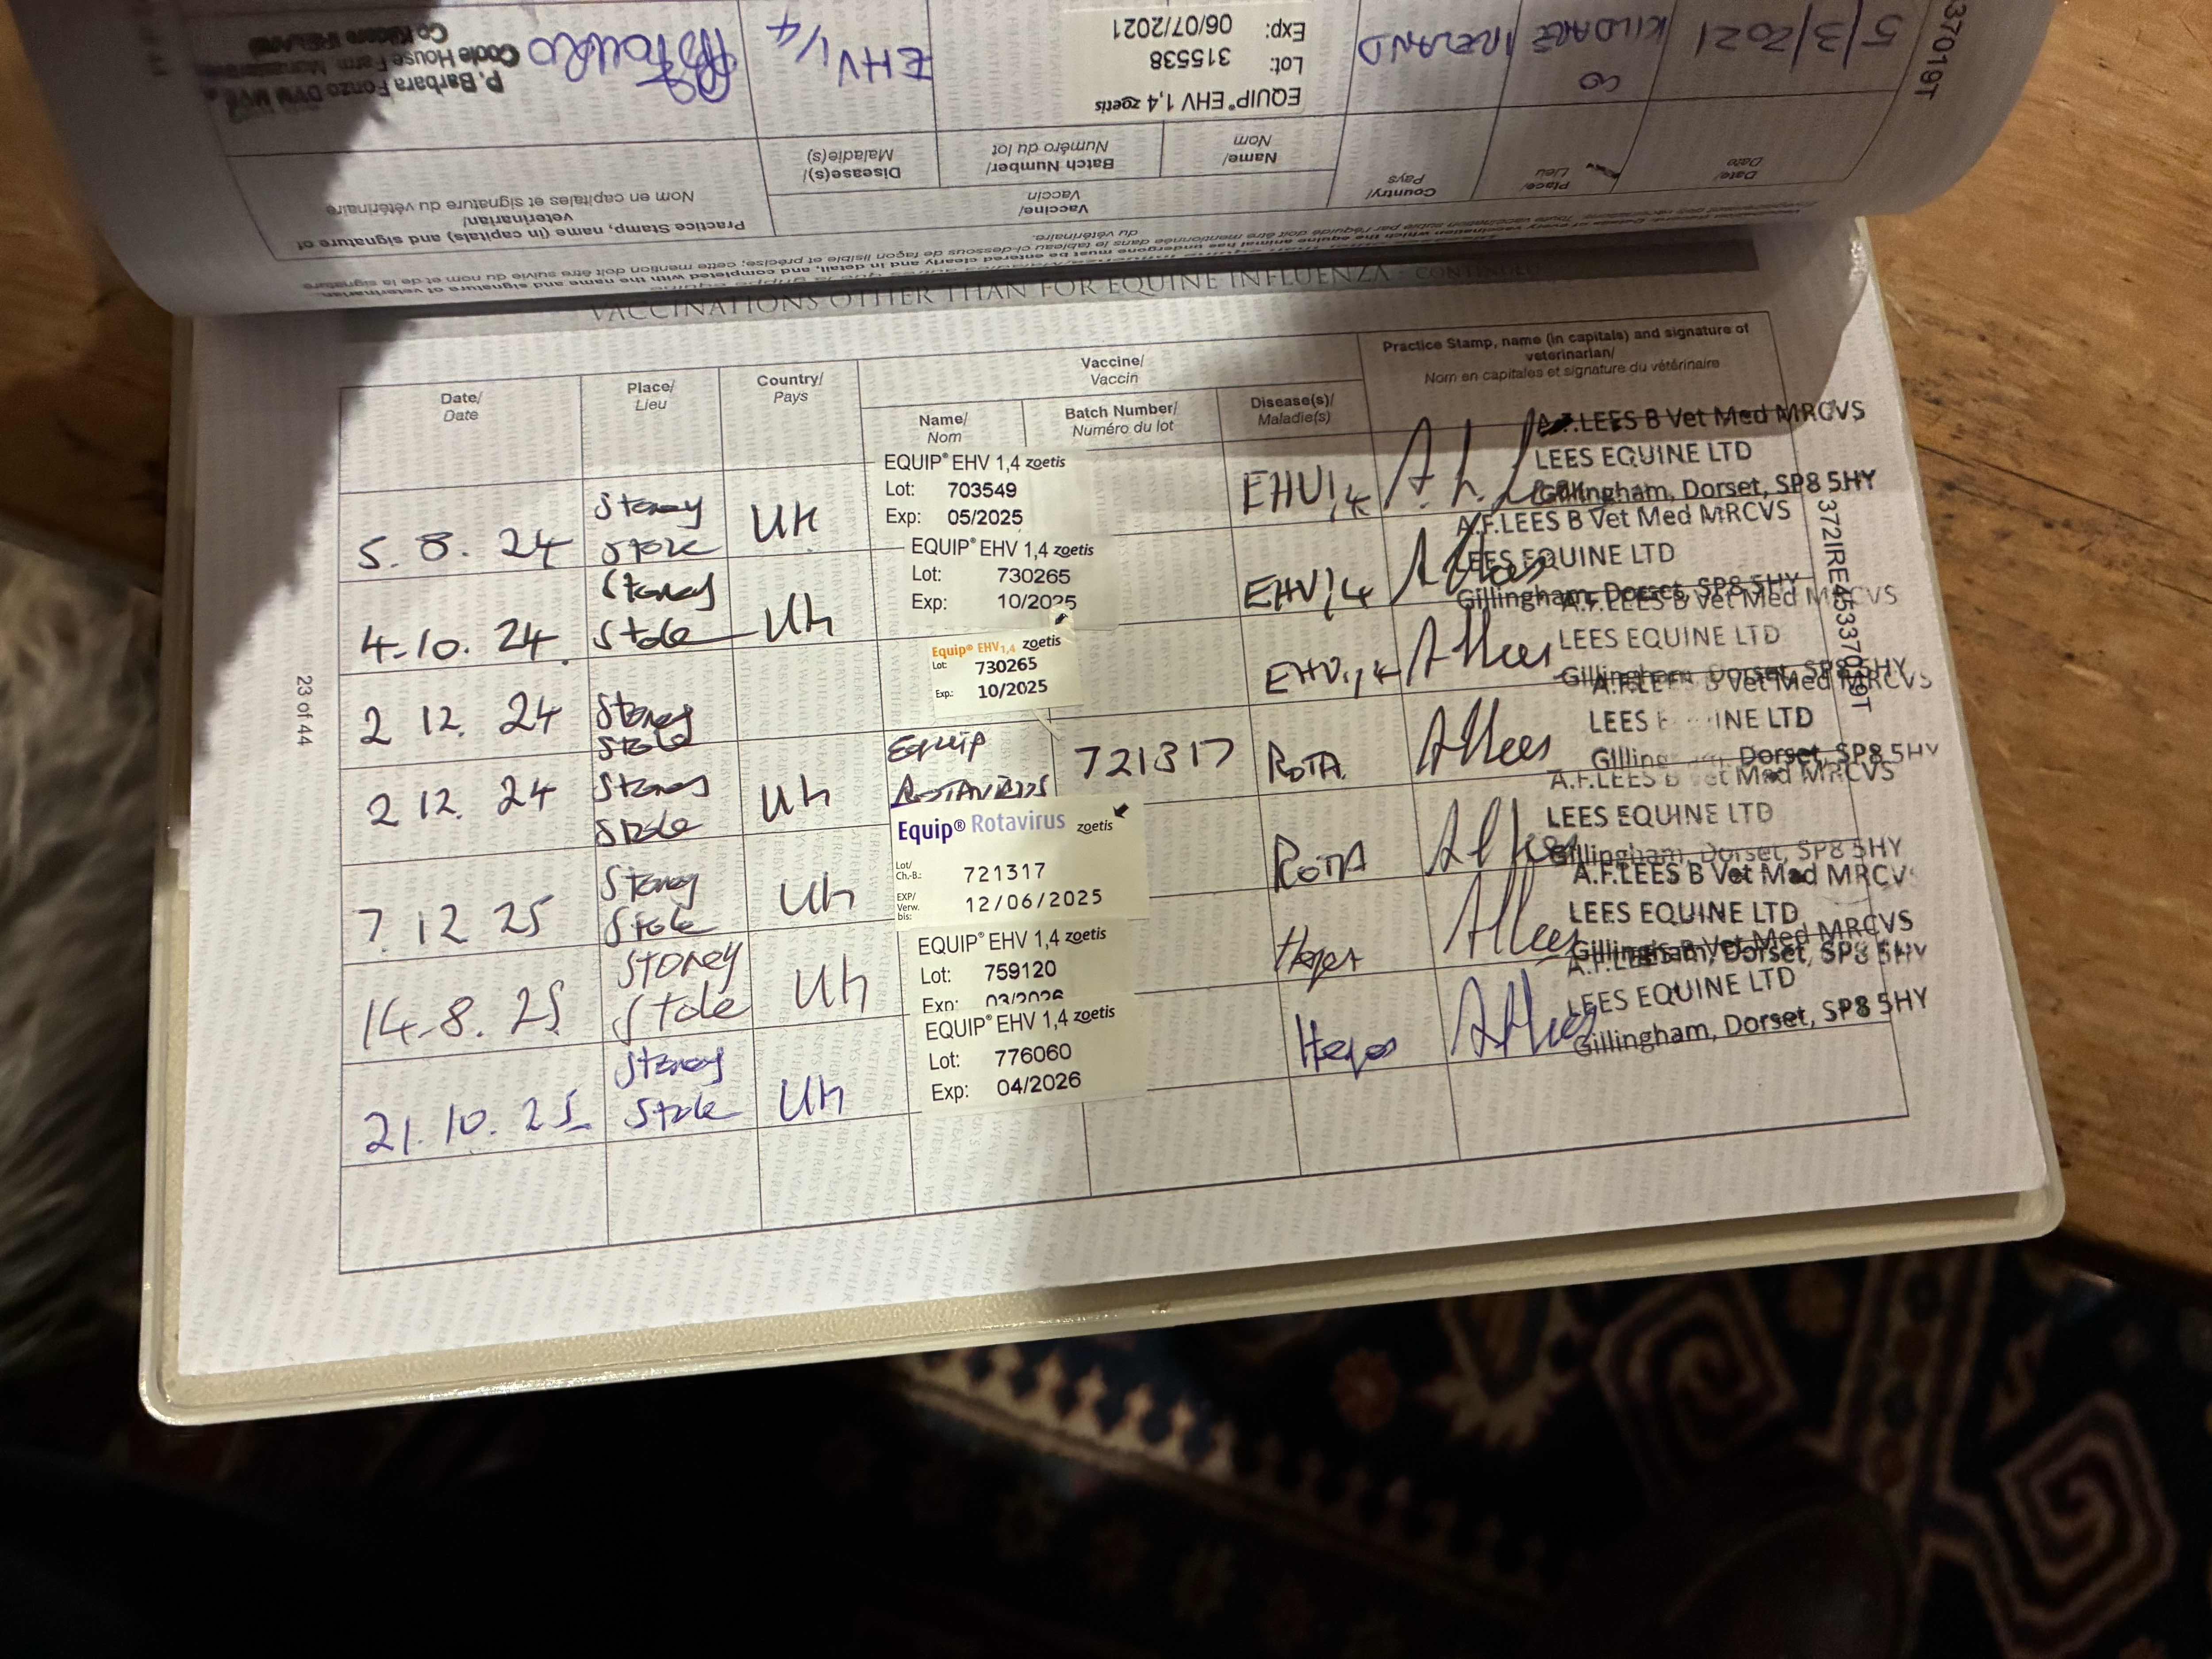 P. Barbara Fonzo DVM
Coole House Farm
Co Kildare IRELAND
EHV 1/4
EQUIP® EHV 1,4 zoetis
Lot: 315538
Exp: 06/07/2021
IRELAND
CO
KILDARE
5/3/2021
37019T
Practice Stamp, name (in capitals) and signature of
veterinarian/
Nom en capitales et signature du vétérinaire
Disease(s)/
Maladie(s)
Vaccine/
Vaccin
Batch Number/
Numéro du lot
Name/
Nom
Country/
Pays
Place/
Lieu
Date/
Date
must be entered clearly and in detail, and completed with the name and signature of veterinarian.
du vétérinaire.
VACCINATIONS OTHER THAN FOR EQUINE INFLUENZA - CONTINUED
Date/
Date
Place/
Lieu
Country/
Pays
Vaccine/
Vaccin
Name/
Nom
Batch Number/
Numéro du lot
Disease(s)/
Maladie(s)
Practice Stamp, name (in capitals) and signature of
veterinarian/
Nom en capitales et signature du vétérinaire
5. 8. 24
Stoney
Stoke
UK
EQUIP® EHV 1,4 zoetis
Lot: 703549
Exp: 05/2025
EHV1,4
A.F.LEES B Vet Med MRCVS
LEES EQUINE LTD
Gillingham, Dorset, SP8 5HY
4.10. 24.
Stoney
Stoke
Uk
EQUIP® EHV 1,4 zoetis
Lot: 730265
Exp: 10/2025
EHV1,4
A.F.LEES B Vet Med MRCVS
LEES EQUINE LTD
Gillingham, Dorset, SP8 5HY
2 12. 24
Stoney
Stoke
Equip® EHV1,4 zoetis
Lot: 730265
Exp.: 10/2025
EHV1,4
A.F.LEES B Vet Med MRCVS
LEES EQUINE LTD
Gillingham, Dorset, SP8 5HY
2 12. 24
Stoney
Stoke
Uk
Equip
Rotavirus
721317
ROTA.
A.F.LEES B Vet Med MRCVS
LEES EQUINE LTD
Gillingham, Dorset, SP8 5HY
7. 12 25
Stoney
Stoke
Uk
Equip® Rotavirus zoetis
Lot/
Ch.-B.: 721317
EXP/
Verw.
bis: 12/06/2025
ROTA
A.F.LEES B Vet Med MRCVS
LEES EQUINE LTD
Gillingham, Dorset, SP8 5HY
14.8. 25
Stoney
Stoke
Uk
EQUIP® EHV 1,4 zoetis
Lot: 759120
Exp: 03/2026
Herpes
A.F.LEES B Vet Med MRCVS
LEES EQUINE LTD
Gillingham, Dorset, SP8 5HY
21. 10. 25
Stoney
Stoke
Uk
EQUIP® EHV 1,4 zoetis
Lot: 776060
Exp: 04/2026
Herpes
A.F.LEES B Vet Med MRCVS
LEES EQUINE LTD
Gillingham, Dorset, SP8 5HY
23 of 44
372IRE45337019T